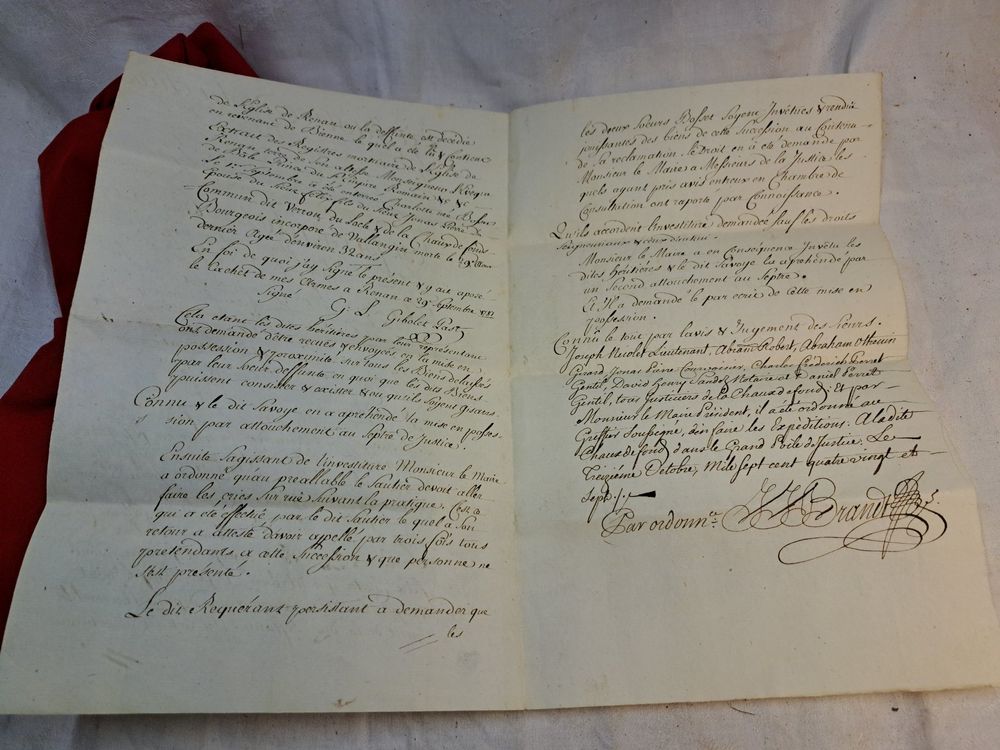 de l'Eglise de Renan ou la deffunte est decédée
en revenant de Bienne le quel a été lû & contient
Extrait des Registres mortuaire de l'Eglise de
Renan, terres de Son altesse Monseigneur
de Bâle Prince du St Empire Romain &c &c
Le 1r Septembre, a été enterrée Charlotte née Rosset
Epouse du Sieur fils du Sieur Jonas Pierre
Commun dit Verron, du Locle & de la Chaux de fonds
Bourgeois incorporé de Vallangin morte le
dernier Agée d'environ 32 ans
En foi de quoi j'ay signé le présent & y ai aposé
le Cachet de mes Armes a Renan ce 29e Septembre 1787
Signé
G. L. Gibolet Past.
Cela étant les dites héritières par leur représentant
ont demandé d'être reçues & envoyées en la mise en
possession & proximité sur tous les Biens delaissés
par leur Sœur deffunte en quoi que les dits Biens
puissent consister & exister & ou qu'ils soyent gisants
Connu & le dit Savoye en a apréhendé la mise en posses-
sion par attouchement au Septre de Justice.
Ensuite s'agissant de l'investiture Monsieur le Maire
a ordonné qu'au preallable le Sautier devoit aller
faire les cries sur rüe suivant la pratique. C'est a
qui a été effectué par le dit Sautier le quel a son
retour a attesté d'avoir appellé par trois fois tous
prétendants a cette Succession & que personne ne
s'est présenté.
Le dit Requérant persistant a demander que
les
les deux Soeurs Rosset Soyent Invêtues & rendües
jouissantes des biens de cette Succession au Contenu
de sa reclamation. le Droit en a été demandé par
Monsieur le Maire a Messieurs de la Justice les
quels ayant pris avis entreux en Chambre de
Consultation ont raporté par Connoissance.
Qu'ils accordent l'investiture demandée, sauf les droits
Seigneuriaux & ceux d'autrui.
Monsieur le Maire a en Consequence Invêtu les
dites héritieres & le dit Savoye l'a apréhendé par
un Second attouchement au Septre.
Et Il a demandé le par ecrit de Cette mise en
possession.
Connu le tout par l'avis & Jugement des Sieurs.
Joseph Nicolet Lieutenant, Abram Robert, Abraham Othenin
Girard Jonas Pierre Courvoisier, Charles Frederich Perret
Gentil, David Henry Sandoz Notaire et Daniel Perret
Gentil, tous Justiciers de la Chaux de fond; Et par
Monsieur le Maire Président, il a été ordonné au
Greffier Soussigné, d'en faire les Expéditions. A la dite
Chaux de fond, dans le Grand Poile de Justice. Le
Treizième Octobre, Mile Sept cent quatre vingt et
Sept./.
Par ordonnce. Brandt